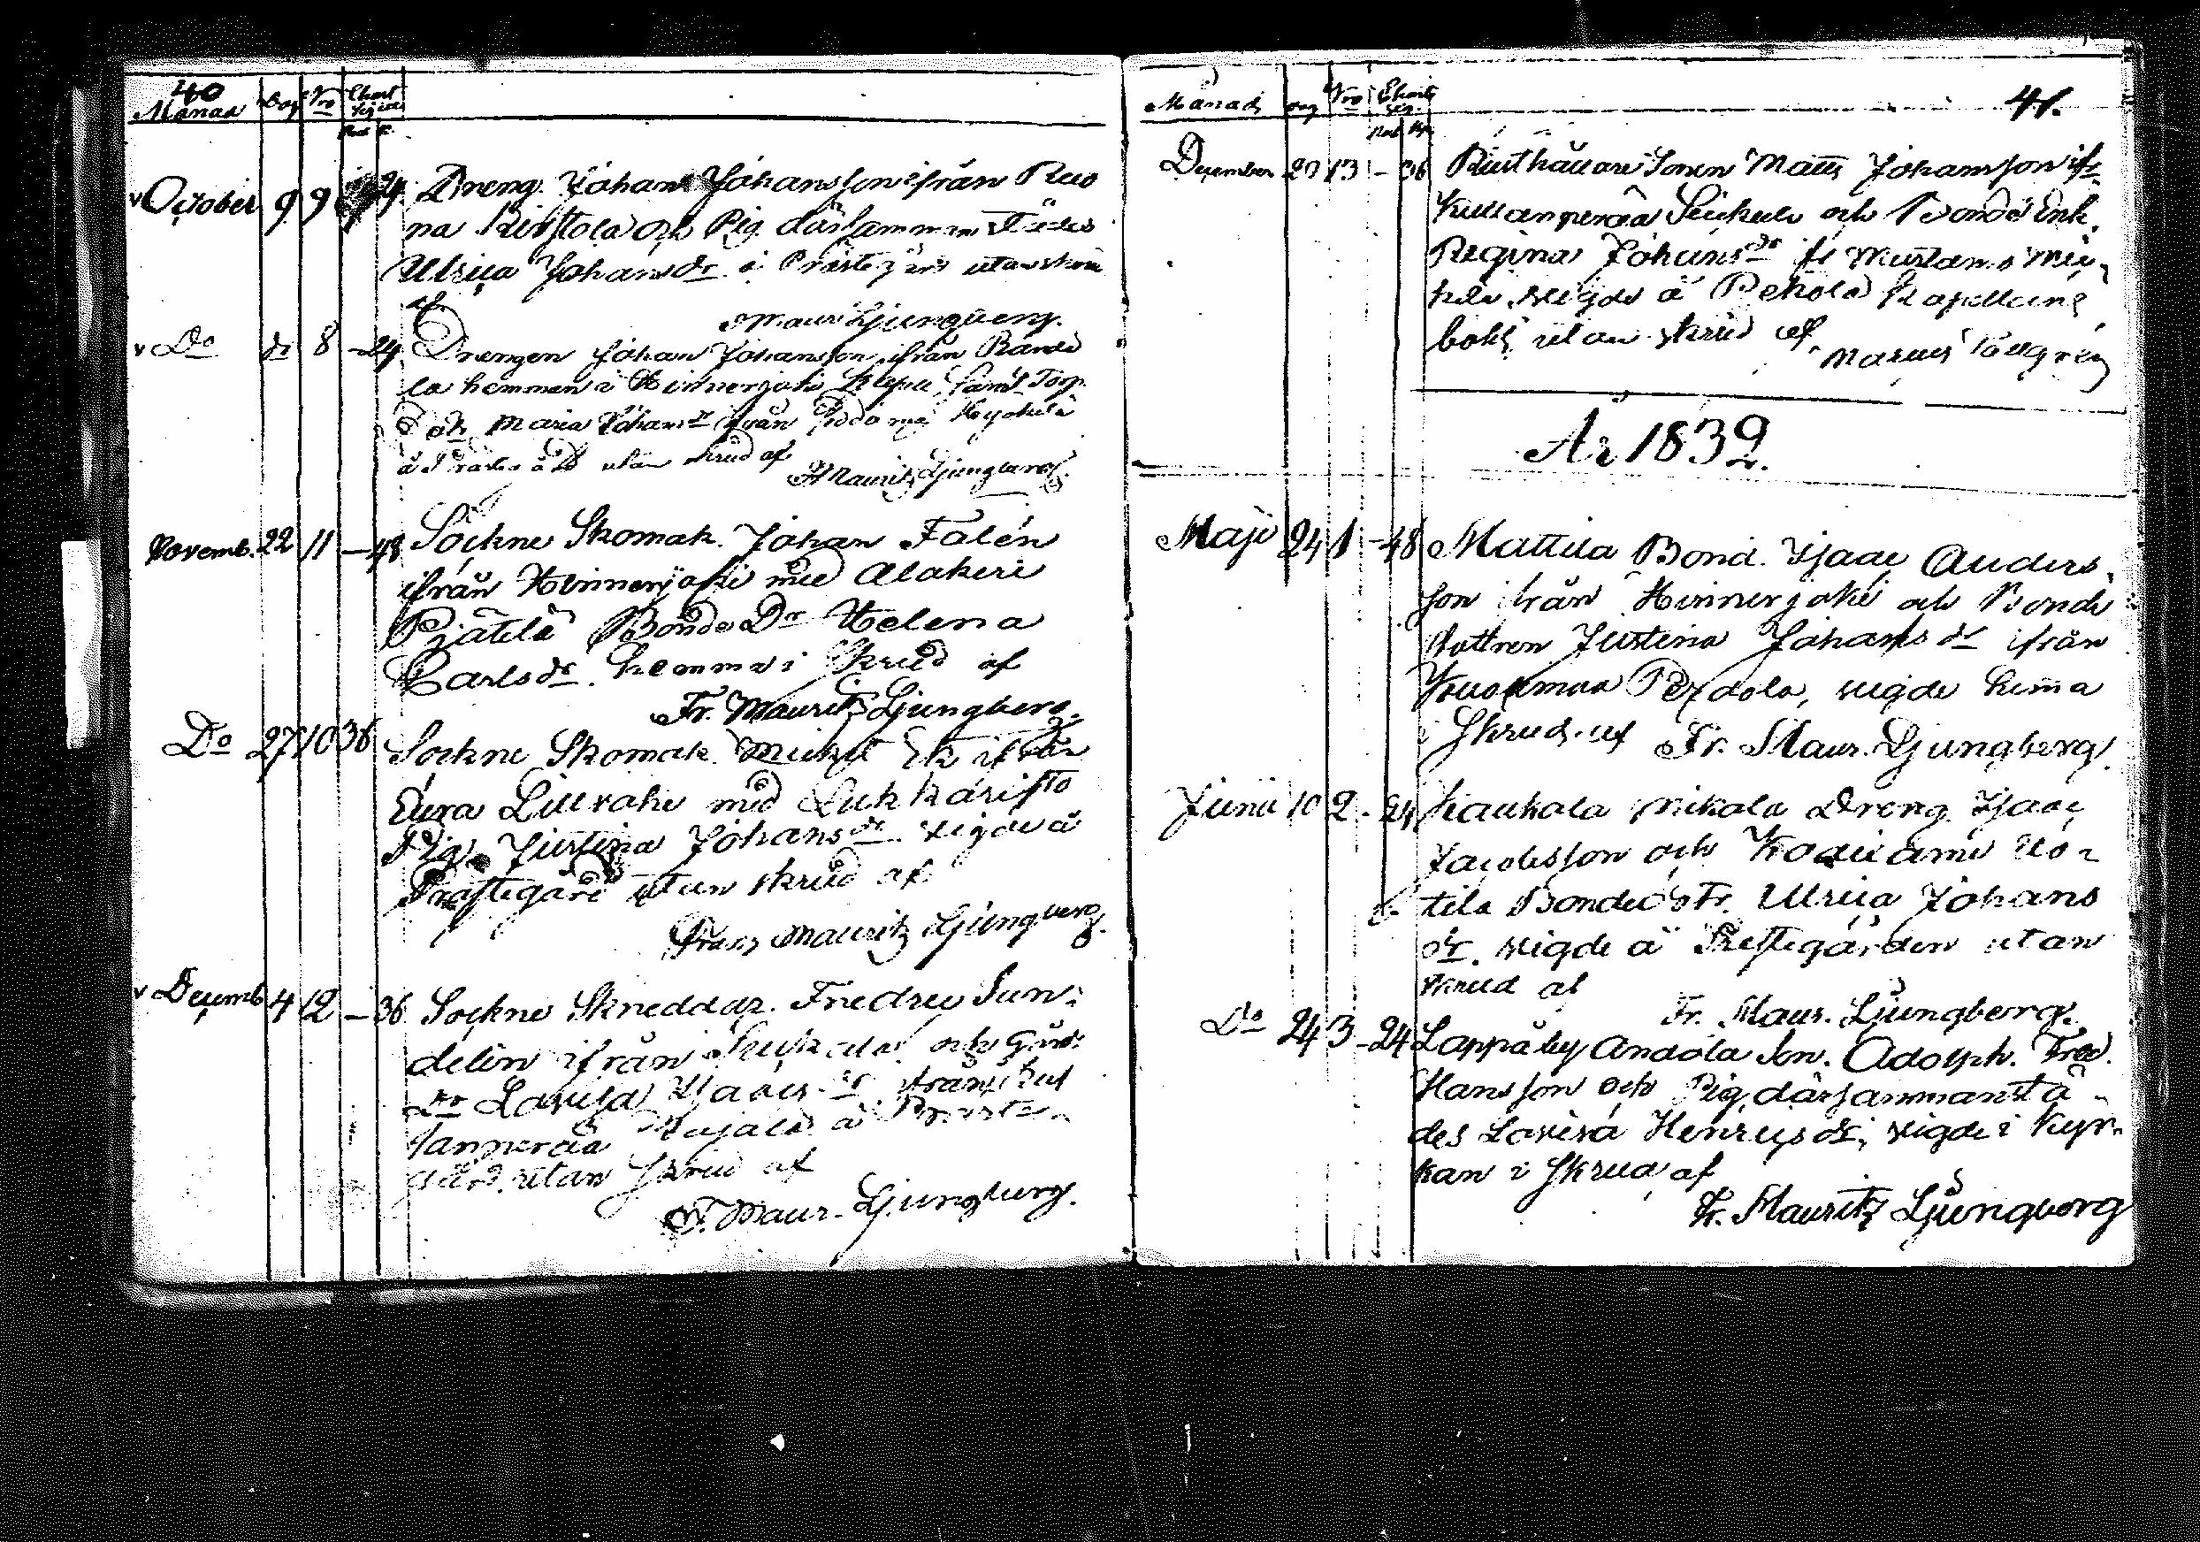 40
Månad Dag No
October 9 9 24 Dreng Johan Johansson ifrån Ruo
na Kirstola och Pig. därsamman Städes
Ulrica Johansdr. å Prästegård utan skrud
af
Maur. Ljungberg.
Do do 8 - 24 Drengen Johan Johansson ifrån Rande
la hemman i Hinnerjoki samt Torp.
Dotr. Maria Johansdr ifrån
utan skrud af
F Mauritz Ljungberg.
Novemb. 22 11 - 48 Sockne Skomak. Johan Falén
ifrån Hinnerjoki med Alakeri
Pjätilä Bonde Dr Helena
Carlsdr. hemma i skrud af
Fr. Mauritz Ljungberg.
Do 27 10 36 Sockne Skomak. Mickel Ek ifrån
Eura med Lukkaristo
Pig. Justina Johansdr. vigde å
Prästegård utan skrud af
Frans Mauritz Ljungberg.
Decemb 4 12 - 36 Sockne Skreddar. Fredric Sun-
delin ifrån och Gårds
Dr Lovisa Isacs dr ifrån Kul
lanperää å Präste-
gård. utan skrud af
F. Maur. Ljungberg.
41.
Månad Dag No
December 20 13 - 36 Rusthållare Sonen Matts Johansson ifr
Kullanperää och Bonde Enk.
Regina Johansdr fr
vigde å Pekola Kapellans
bohl utan skrud af
År 1839.
Maji 24 1 - 48 Mattila Bond. Isaac Anders
son från Hinnerjoki och Bonde
dottren Justina Johansdr ifrån
vigde hema
i skrud af Fr. Maur. Ljungberg.
Junii 10 2 - 24 Kaukola Mikola Dreng Isaac
Jacobsson och Uo-
tila Bondedotr. Ulrica Johans
dr. vigde å Prestegården utan
skrud af
Fr. Maur. Ljungberg.
Do 24 3 - 24 Lappäby Andola Son. Adolph. Fred.
Hansson och Pig därsammanstä
des Lovisa Henricsdr, vigde i kyr-
kan i skrud af
Fr. Mauritz Ljungberg